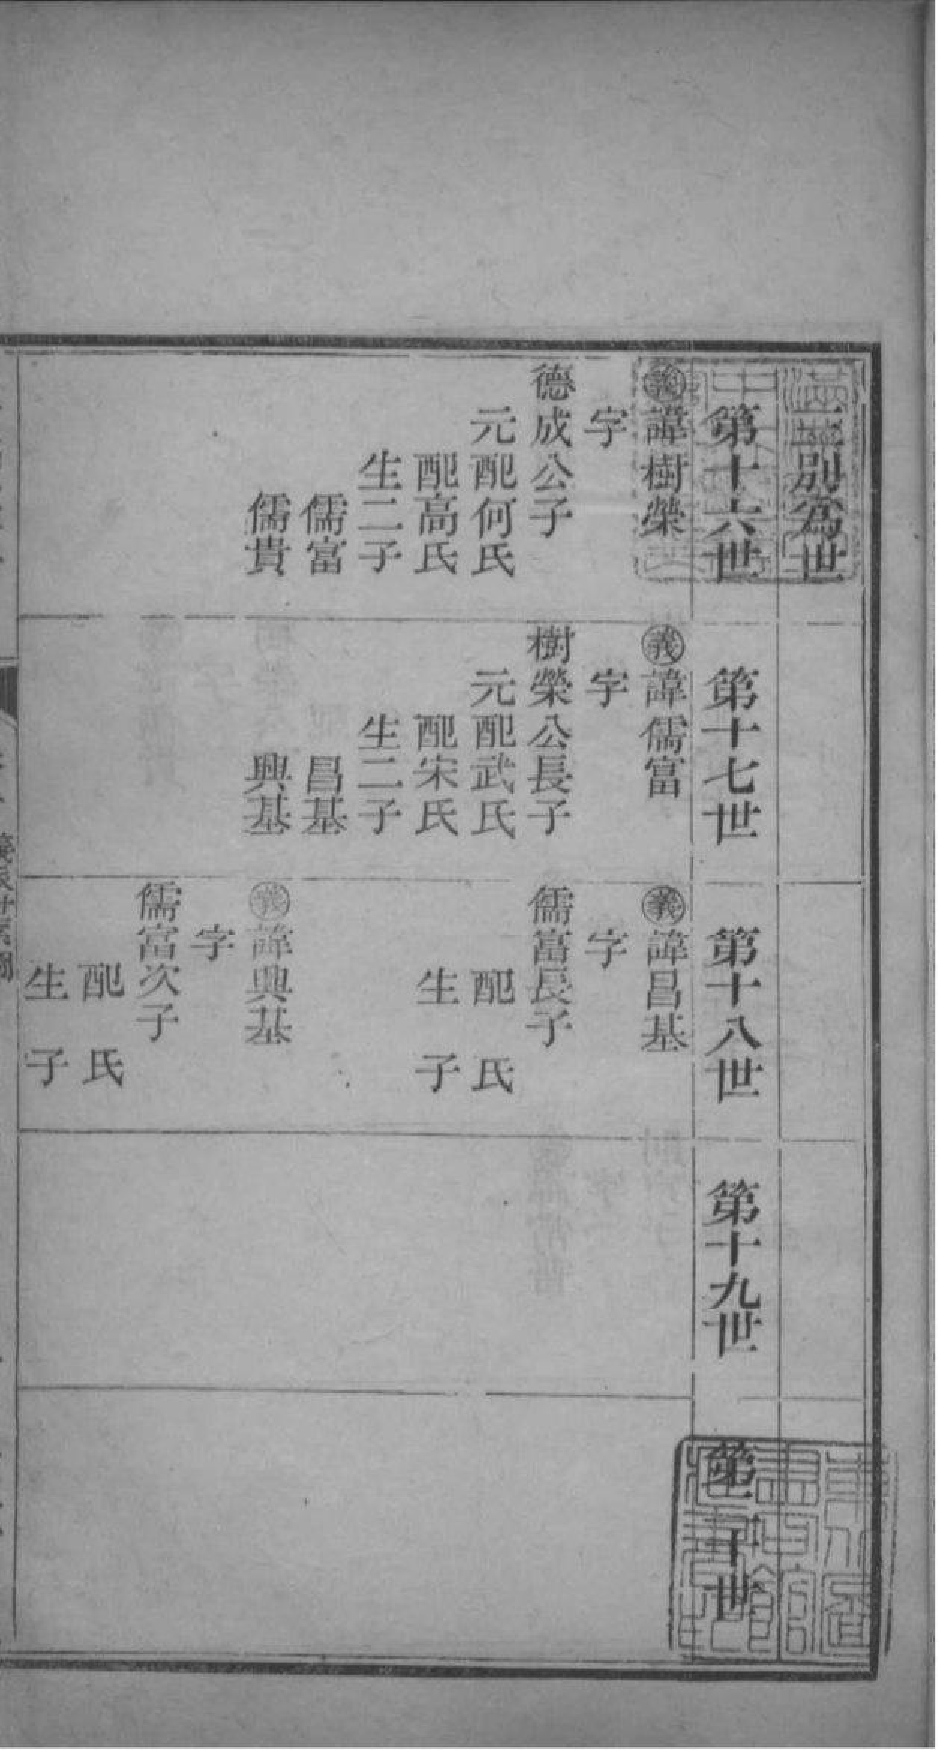 三別爲世
第十六世
義諱樹榮
字
德成公子
元配何氏
配高氏
生二子
儒富
儒貴
第十七世
義諱儒富
字
樹榮公長子
元配武氏
配宋氏
生二子
昌基
興基
第十八世
義諱昌基
字
儒富長子
配 氏
生 子
義諱興基
字
儒富次子
配 氏
生 子
第十九世
第二十世